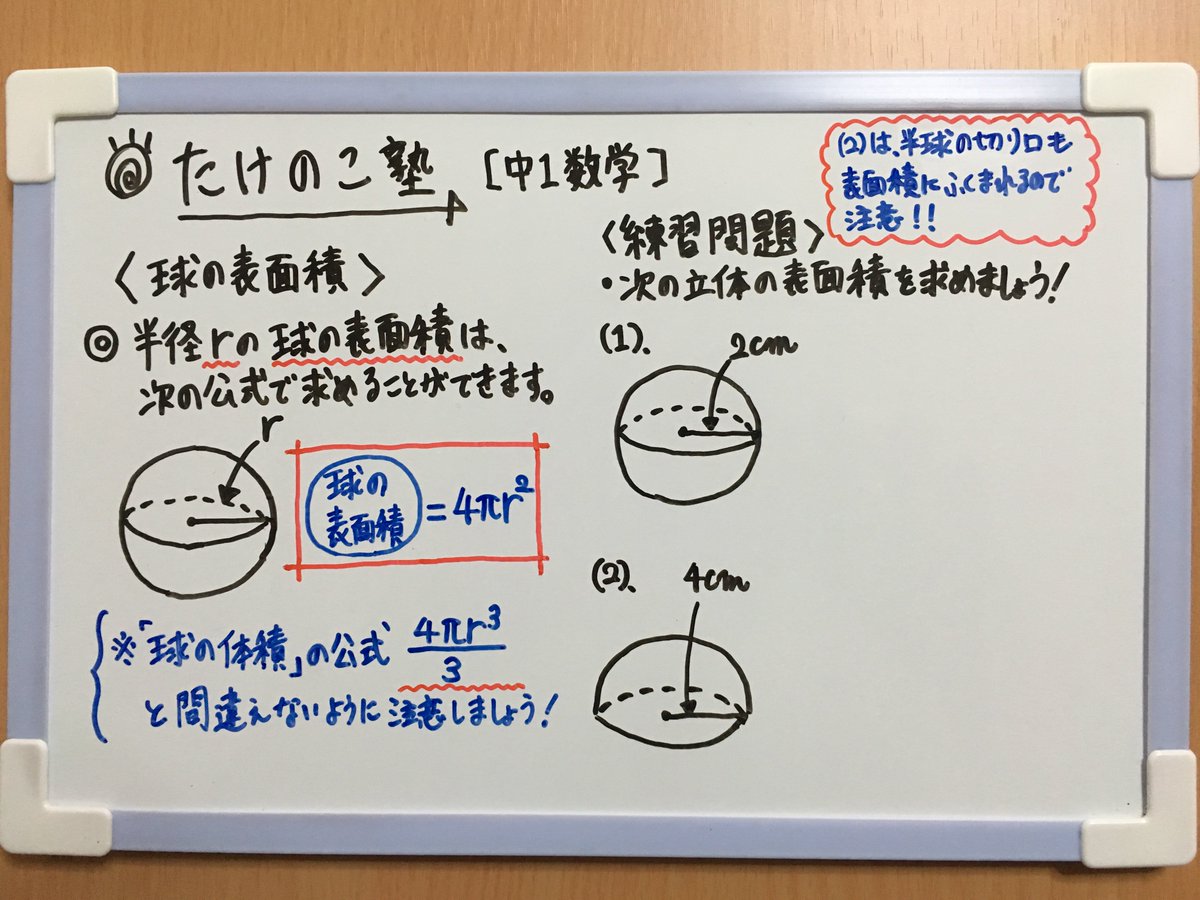 たけのこ塾 [中1数学]
〈球の表面積〉
◎ 半径rの球の表面積は、
次の公式で求めることができます。
r
球の
表面積 = 4πr²
※「球の体積」の公式 4πr³/3
と間違えないように注意しましょう!
(2)は、半球の切り口も
表面積にふくまれるので
注意!!
〈練習問題〉
・次の立体の表面積を求めましょう!
(1)、 2cm
(2)、 4cm